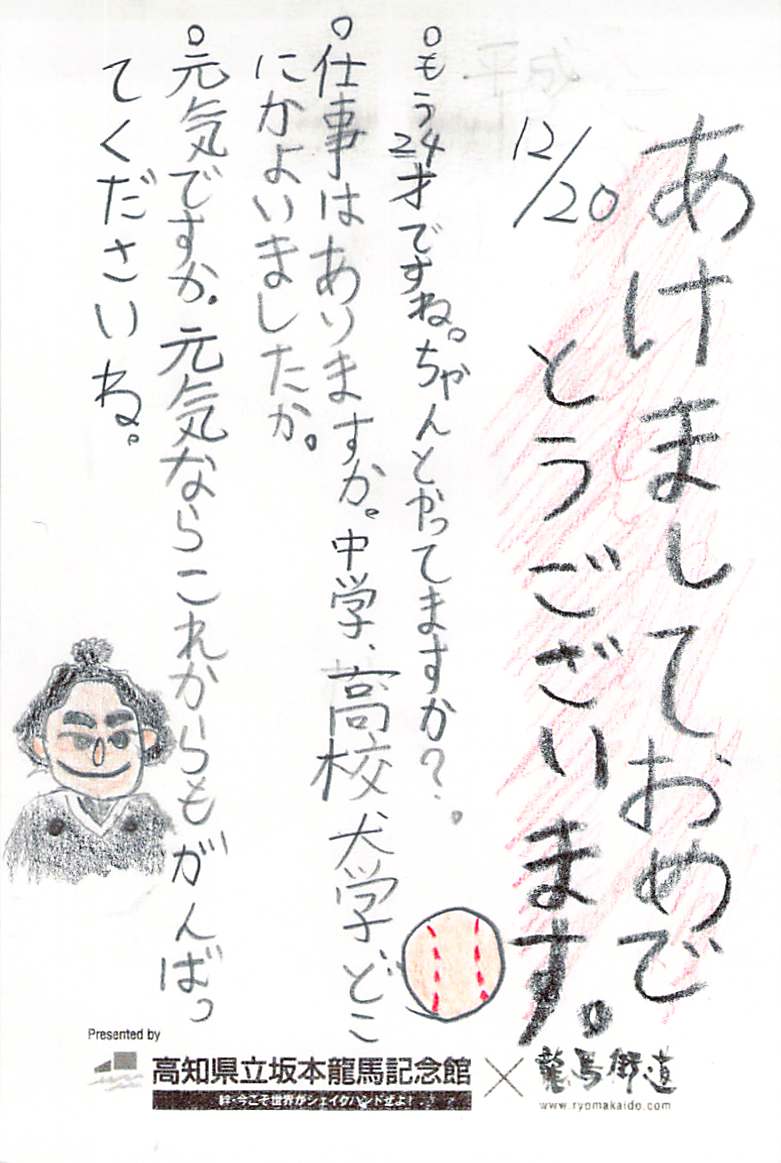 あけましておめで
とうございます。
12/20
平成
。もう24才ですね。ちゃんとやってますか？。
。仕事はありますか。中学、高校犬学どこ
にかよいましたか。
。元気ですか。元気ならこれからもがんばっ
てくださいね。
Presented by
高知県立坂本龍馬記念館
絆・今こそ世界がシェイクハンドぜよ！
龍馬街道
www.ryomakaido.com